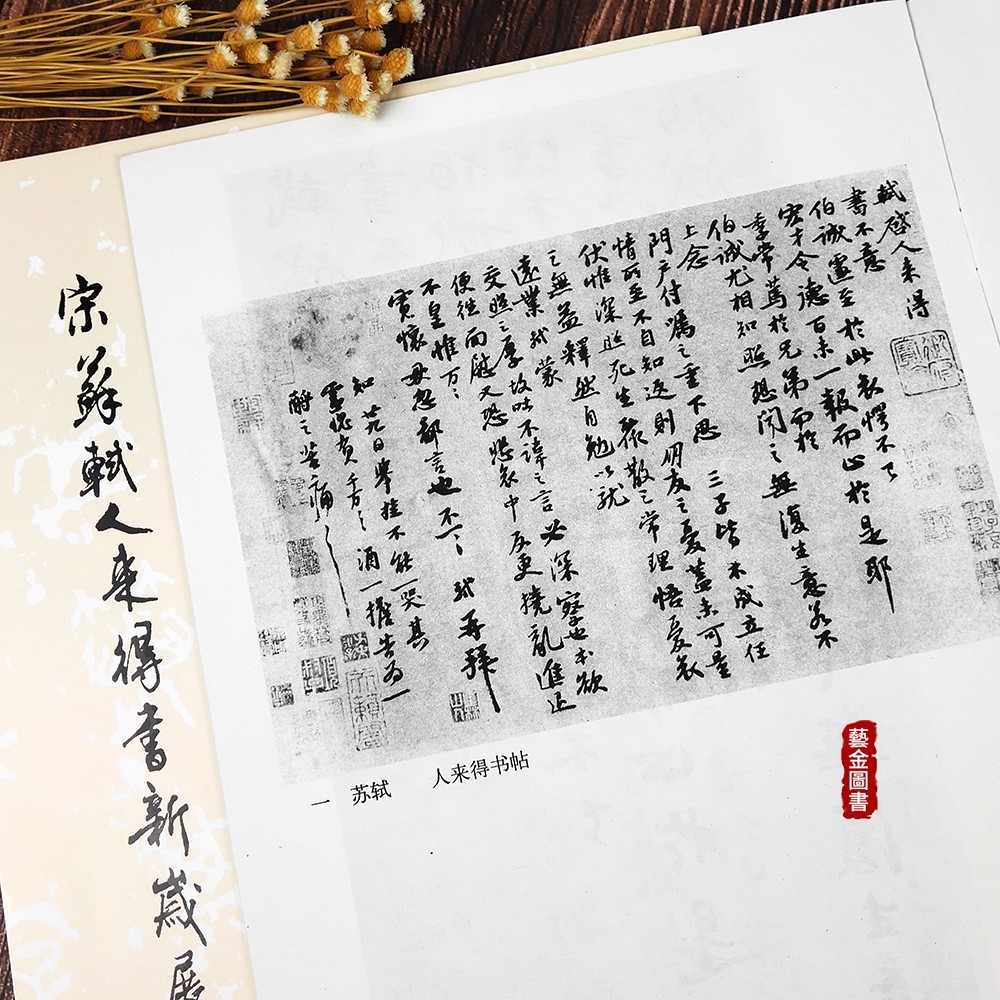 宋蘇軾人来得書新歲展
軾啓人来得
書不意
伯誠遽至於此哀愕不已
宏才令德百未一報而止於是耶
季常篤於兄弟而於
伯誠尤相知照想聞之無復生意若不
上念
門户付囑之重下思 三子皆未成立任
情所至不自知返則朋友之憂蓋未可量
伏惟深照死生聚散之常理悟憂哀
之無益釋然自勉以就
遠業軾蒙
交照之厚故吐不諱之言必深察也本欲
便往面慰又恐悲哀中反更撓亂進退
不皇惟万〻
寬懷毋忽鄙言也不一〻 軾再拜
知廿九日舉挂不能一哭其
靈愧負千万〻酒一擔告為一
酹之苦痛〻
一 苏轼 人来得书帖
藝金圖書